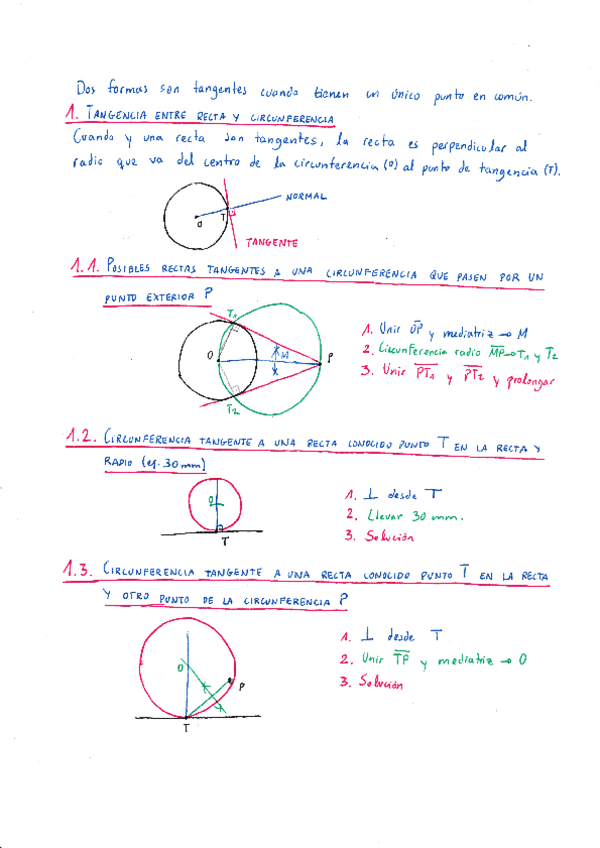 Dos formas son tangentes cuando tienen un único punto en común.
1. TANGENCIA ENTRE RECTA Y CIRCUNFERENCIA
Cuando y una recta son tangentes, la recta es perpendicular al
radio que va del centro de la circunferencia (O) al punto de tangencia (T).
NORMAL
O
T
TANGENTE
1.1. POSIBLES RECTAS TANGENTES A UNA CIRCUNFERENCIA QUE PASEN POR UN
PUNTO EXTERIOR P
T1
O
M
P
T2
1. Unir OP y mediatriz → M
2. Circunferencia radio MP → T1 y T2
3. Unir PT1 y PT2 y prolongar
1.2. CIRCUNFERENCIA TANGENTE A UNA RECTA CONOCIDO PUNTO T EN LA RECTA Y
RADIO (ej. 30 mm)
O
T
1. ⊥ desde T
2. Llevar 30 mm.
3. Solución
1.3. CIRCUNFERENCIA TANGENTE A UNA RECTA CONOCIDO PUNTO T EN LA RECTA
Y OTRO PUNTO DE LA CIRCUNFERENCIA P
O
P
T
1. ⊥ desde T
2. Unir TP y mediatriz → O
3. Solución